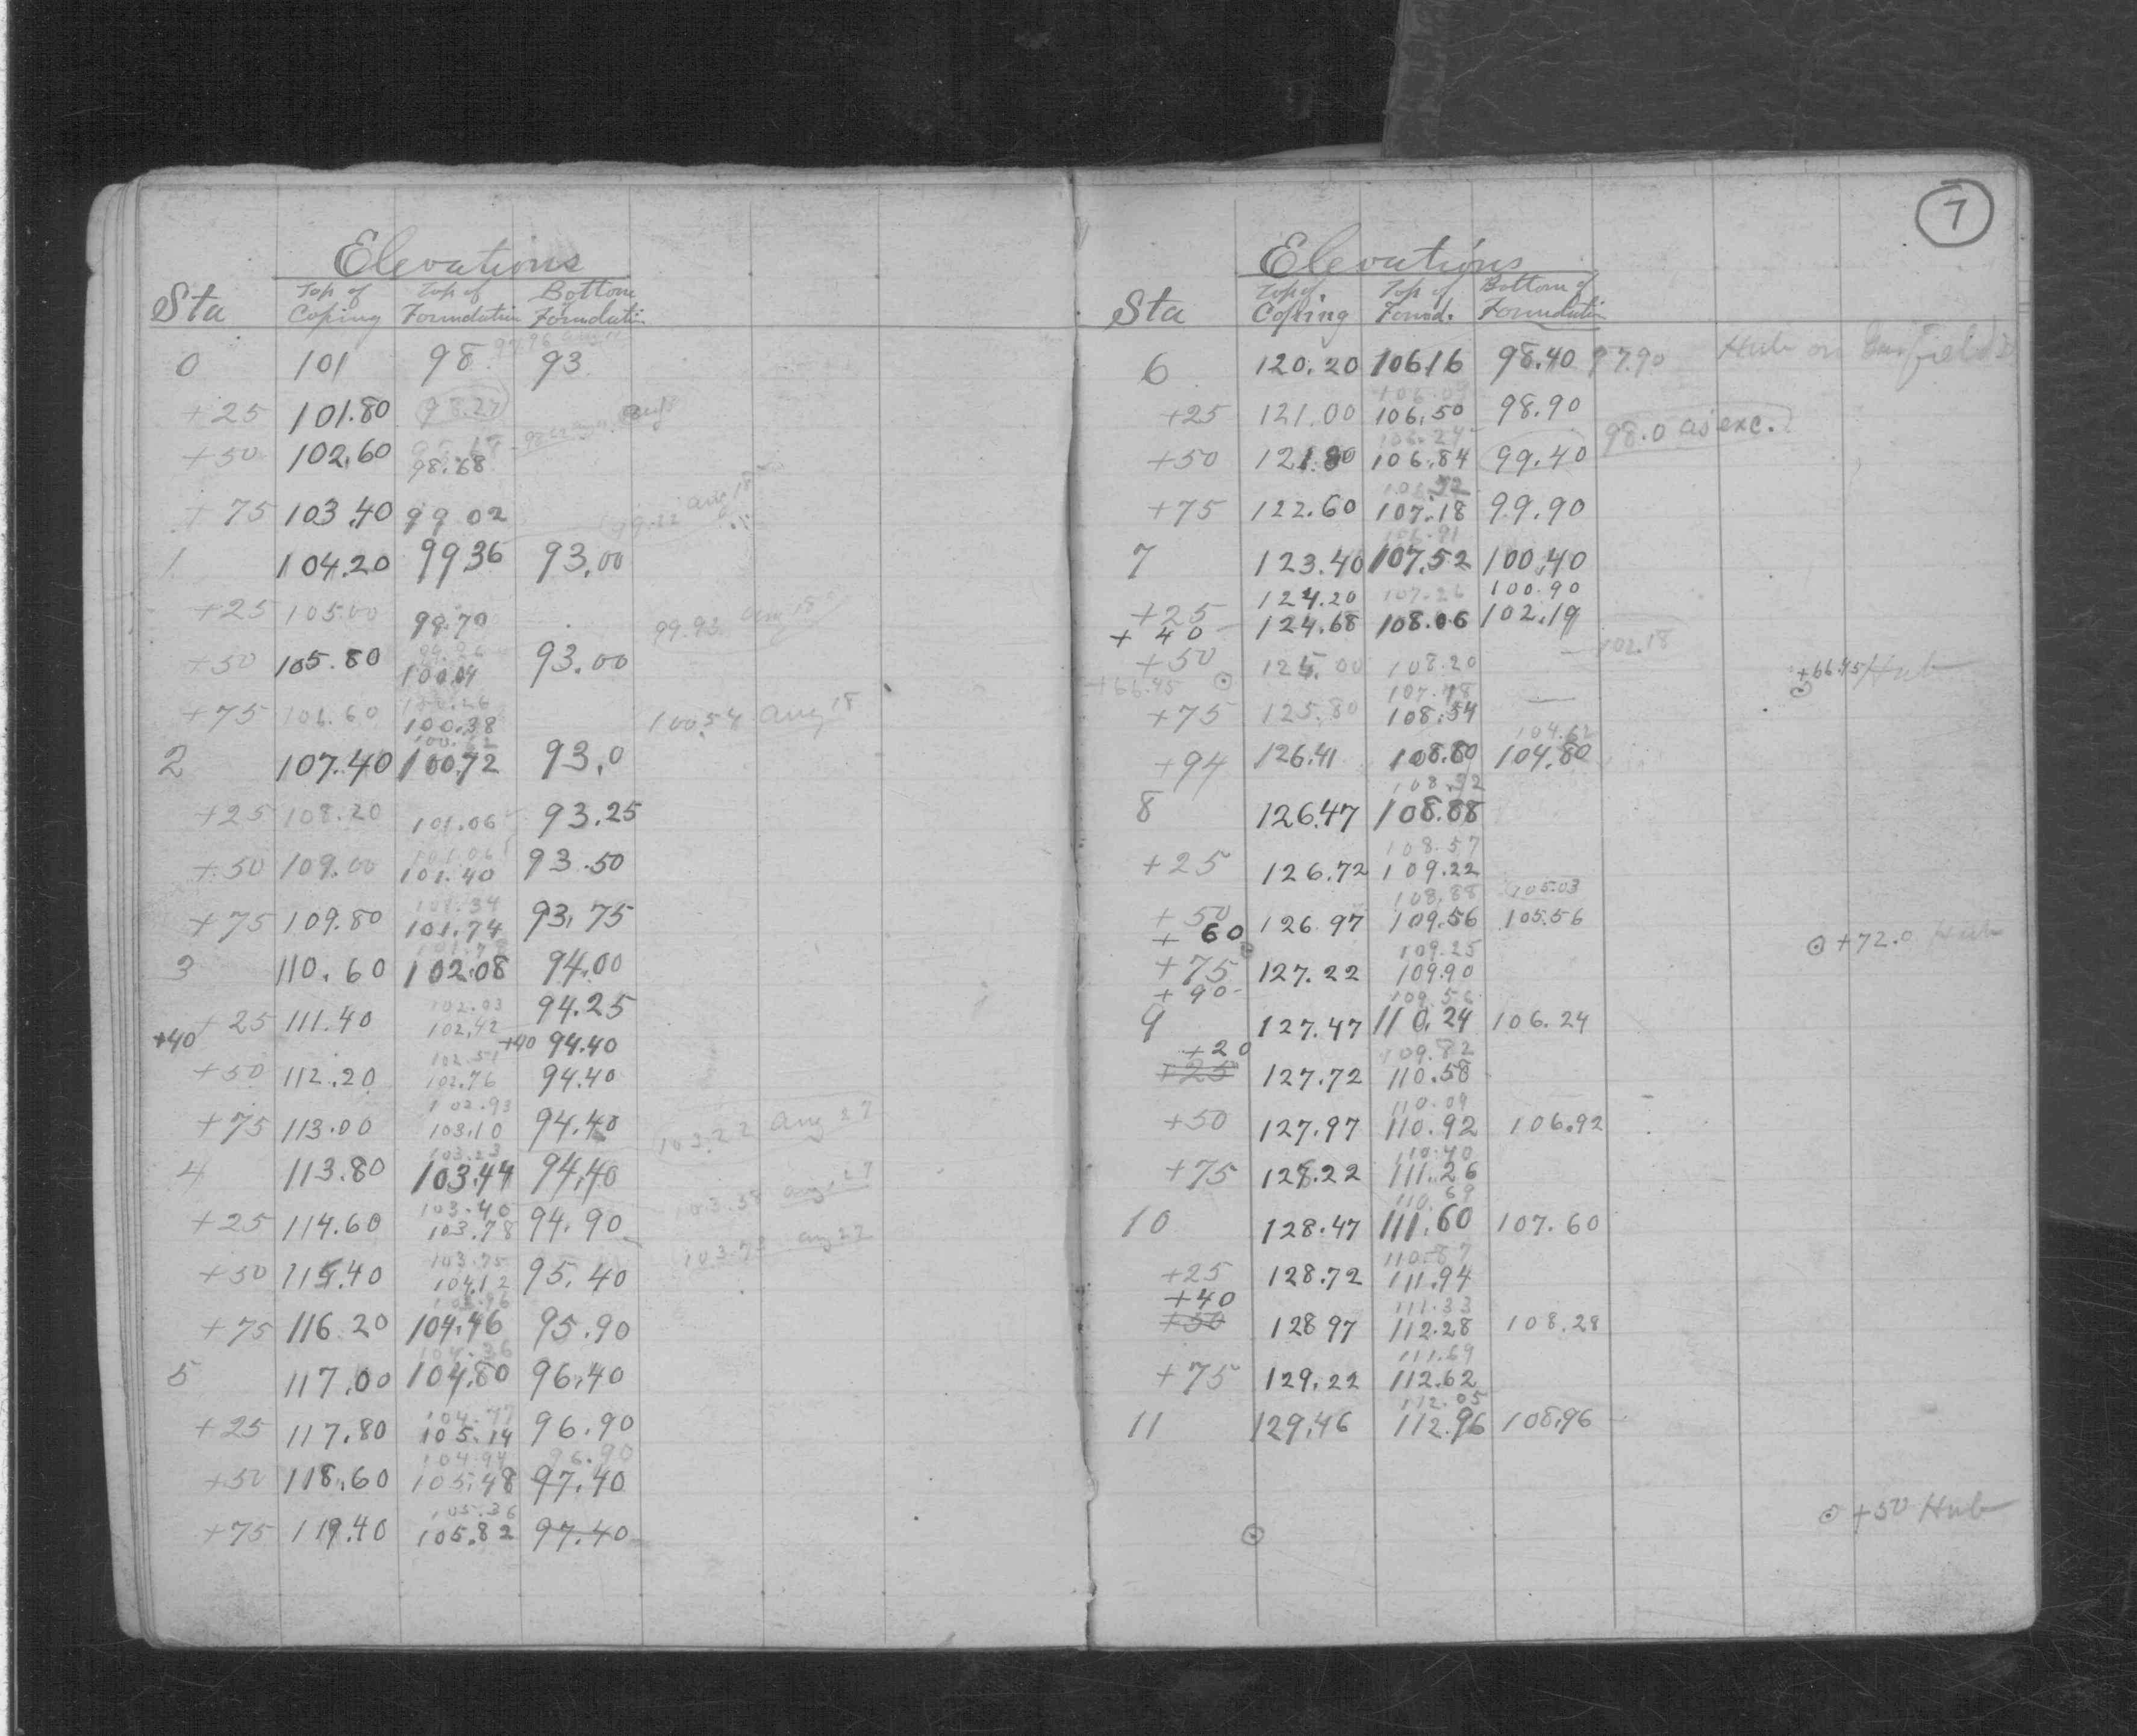 Elevations
Sta Top of Coping Top of Foundation Bottom Foundation
0 101 98 93
+25 101.80 98.27
+50 102.60 98.68
+75 103.40 99 02
1 104.20 99 36 93.00
+25 105.00 99.70 99.93 Aug 18
+50 105.80 100.04 93.00
+75 106.60 100.38 100.54 Aug 18
2 107.40 100.72 93.0
+25 108.20 101.06 93.25
101.06
+50 109.00 101.40 93.50
101.34
+75 109.80 101.74 93.75
3 110.60 102.08 94.00
102.03
+25 111.40 102.42 94.25
+40 +40 94.40
102.51
+50 112.20 102.76 94.40
102.93
+75 113.00 103.10 94.40 103.22 Aug 27
103.23
4 113.80 103.44 94.40
103.40 103.58 Aug. 27
+25 114.60 103.78 94.90
103.75 103.73 Aug 27
+50 115.40 104.12 95.40
103.96
+75 116 20 104.46 95.90
104.36
5 117.00 104.80 96.40
104.77
+25 117.80 105.14 96.90
104.94 96.90
+50 118.60 105.48 97.40
105.36
+75 119.40 105.82 97.40
7
Elevations
Sta Top of Coping Top of Found. Bottom of Foundation
6 120.20 106 16 98.40 97.90 Hub on Garfield
+25 121.00 106.50 98.90
106.24 98.0 as exc.
+50 121.80 106.84 99.40
+75 122.60 107.18 99.90
106.91
7 123.40 107.52 100.40
+25 124.20 107.26 100.90
+40 124.68 108.06 102.19
102.18
+50 125.00 108.20
+66.45 ⊙ +66.45 Hub
107.78
+75 125.80 108.54 —
104.62
+94 126.41 108.80 104.80
108.32
8 126.47 108.88
108.57
+25 126.72 109.22
108.88 105.03
+50 126.97 109.56 105.56
+60 ⊙ +72.0 Hub
109.25
+75 127.22 109.90
+90 109.56
9 127.47 110.24 106.24
+20 109.82
+25 127.72 110.58
110.09
+50 127.97 110.92 106.92
110.40
+75 128.22 111.26
110.69
10 128.47 111.60 107.60
110.87
+25 128.72 111.94
+40 111.33
+50 128 97 112.28 108.28
111.69
+75 129.22 112.62
112.05
11 129.46 112.96 108.96
⊙ ⊙ +50 Hub